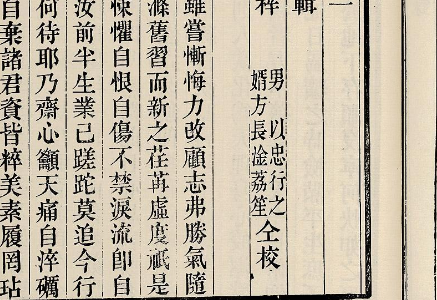 輯
梓
男 以忠行之
婿方長淦荔笙
仝校
雖嘗慚悔力改顧志弗勝氣隨
滌舊習而新之荏苒虛度祇是
悚懼自恨自傷不禁淚流卽自
汝前半生業已蹉跎莫追今行
何待耶乃齋心籲天痛自淬礪
自棄諸君資皆粹美素履罔玷